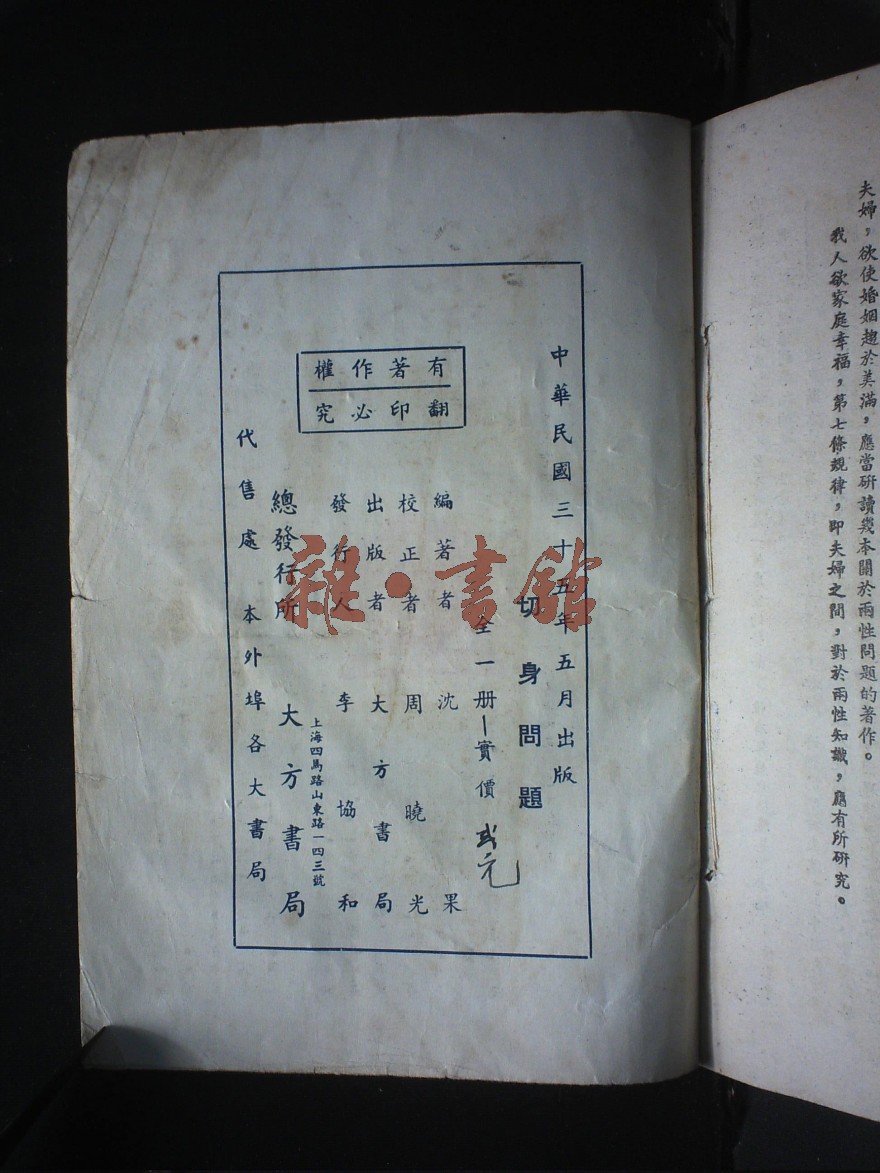 夫婦，欲使婚姻趨於美滿，應當研讀幾本關於兩性問題的著作。
我人欲家庭幸福，第七條規律，即夫婦之間，對於兩性知識，應有所研究。
中華民國三十五年五月出版
切身問題
全一册—實價 弍元
有著作權
翻印必究
編著者 沈果
校正者 周曉光
出版者 大方書局
發行人 李協和
上海四馬路山東路一四三號
總發行所 大方書局
代售處 本外埠各大書局
雜·書館